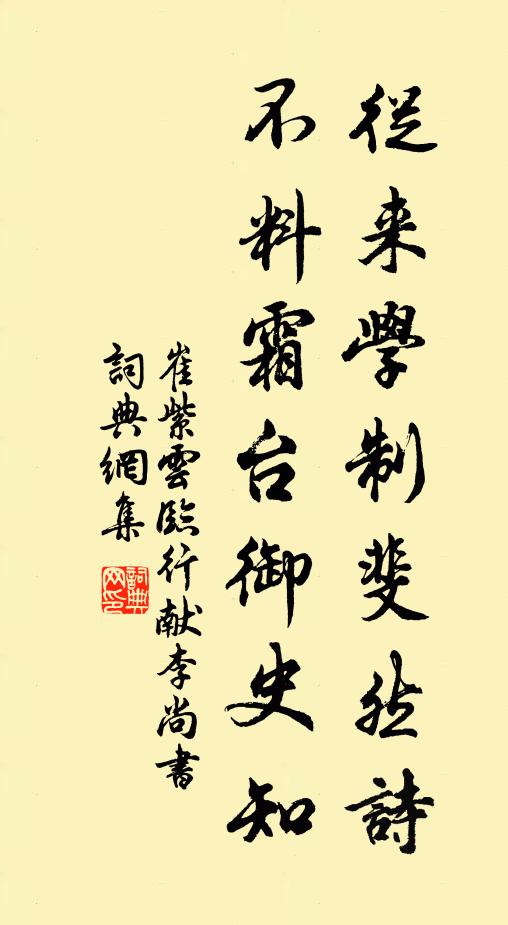 從来學制斐然詩
不料霜台御史知
崔紫雲臨行献李尚書
詞典網集
詞典網印